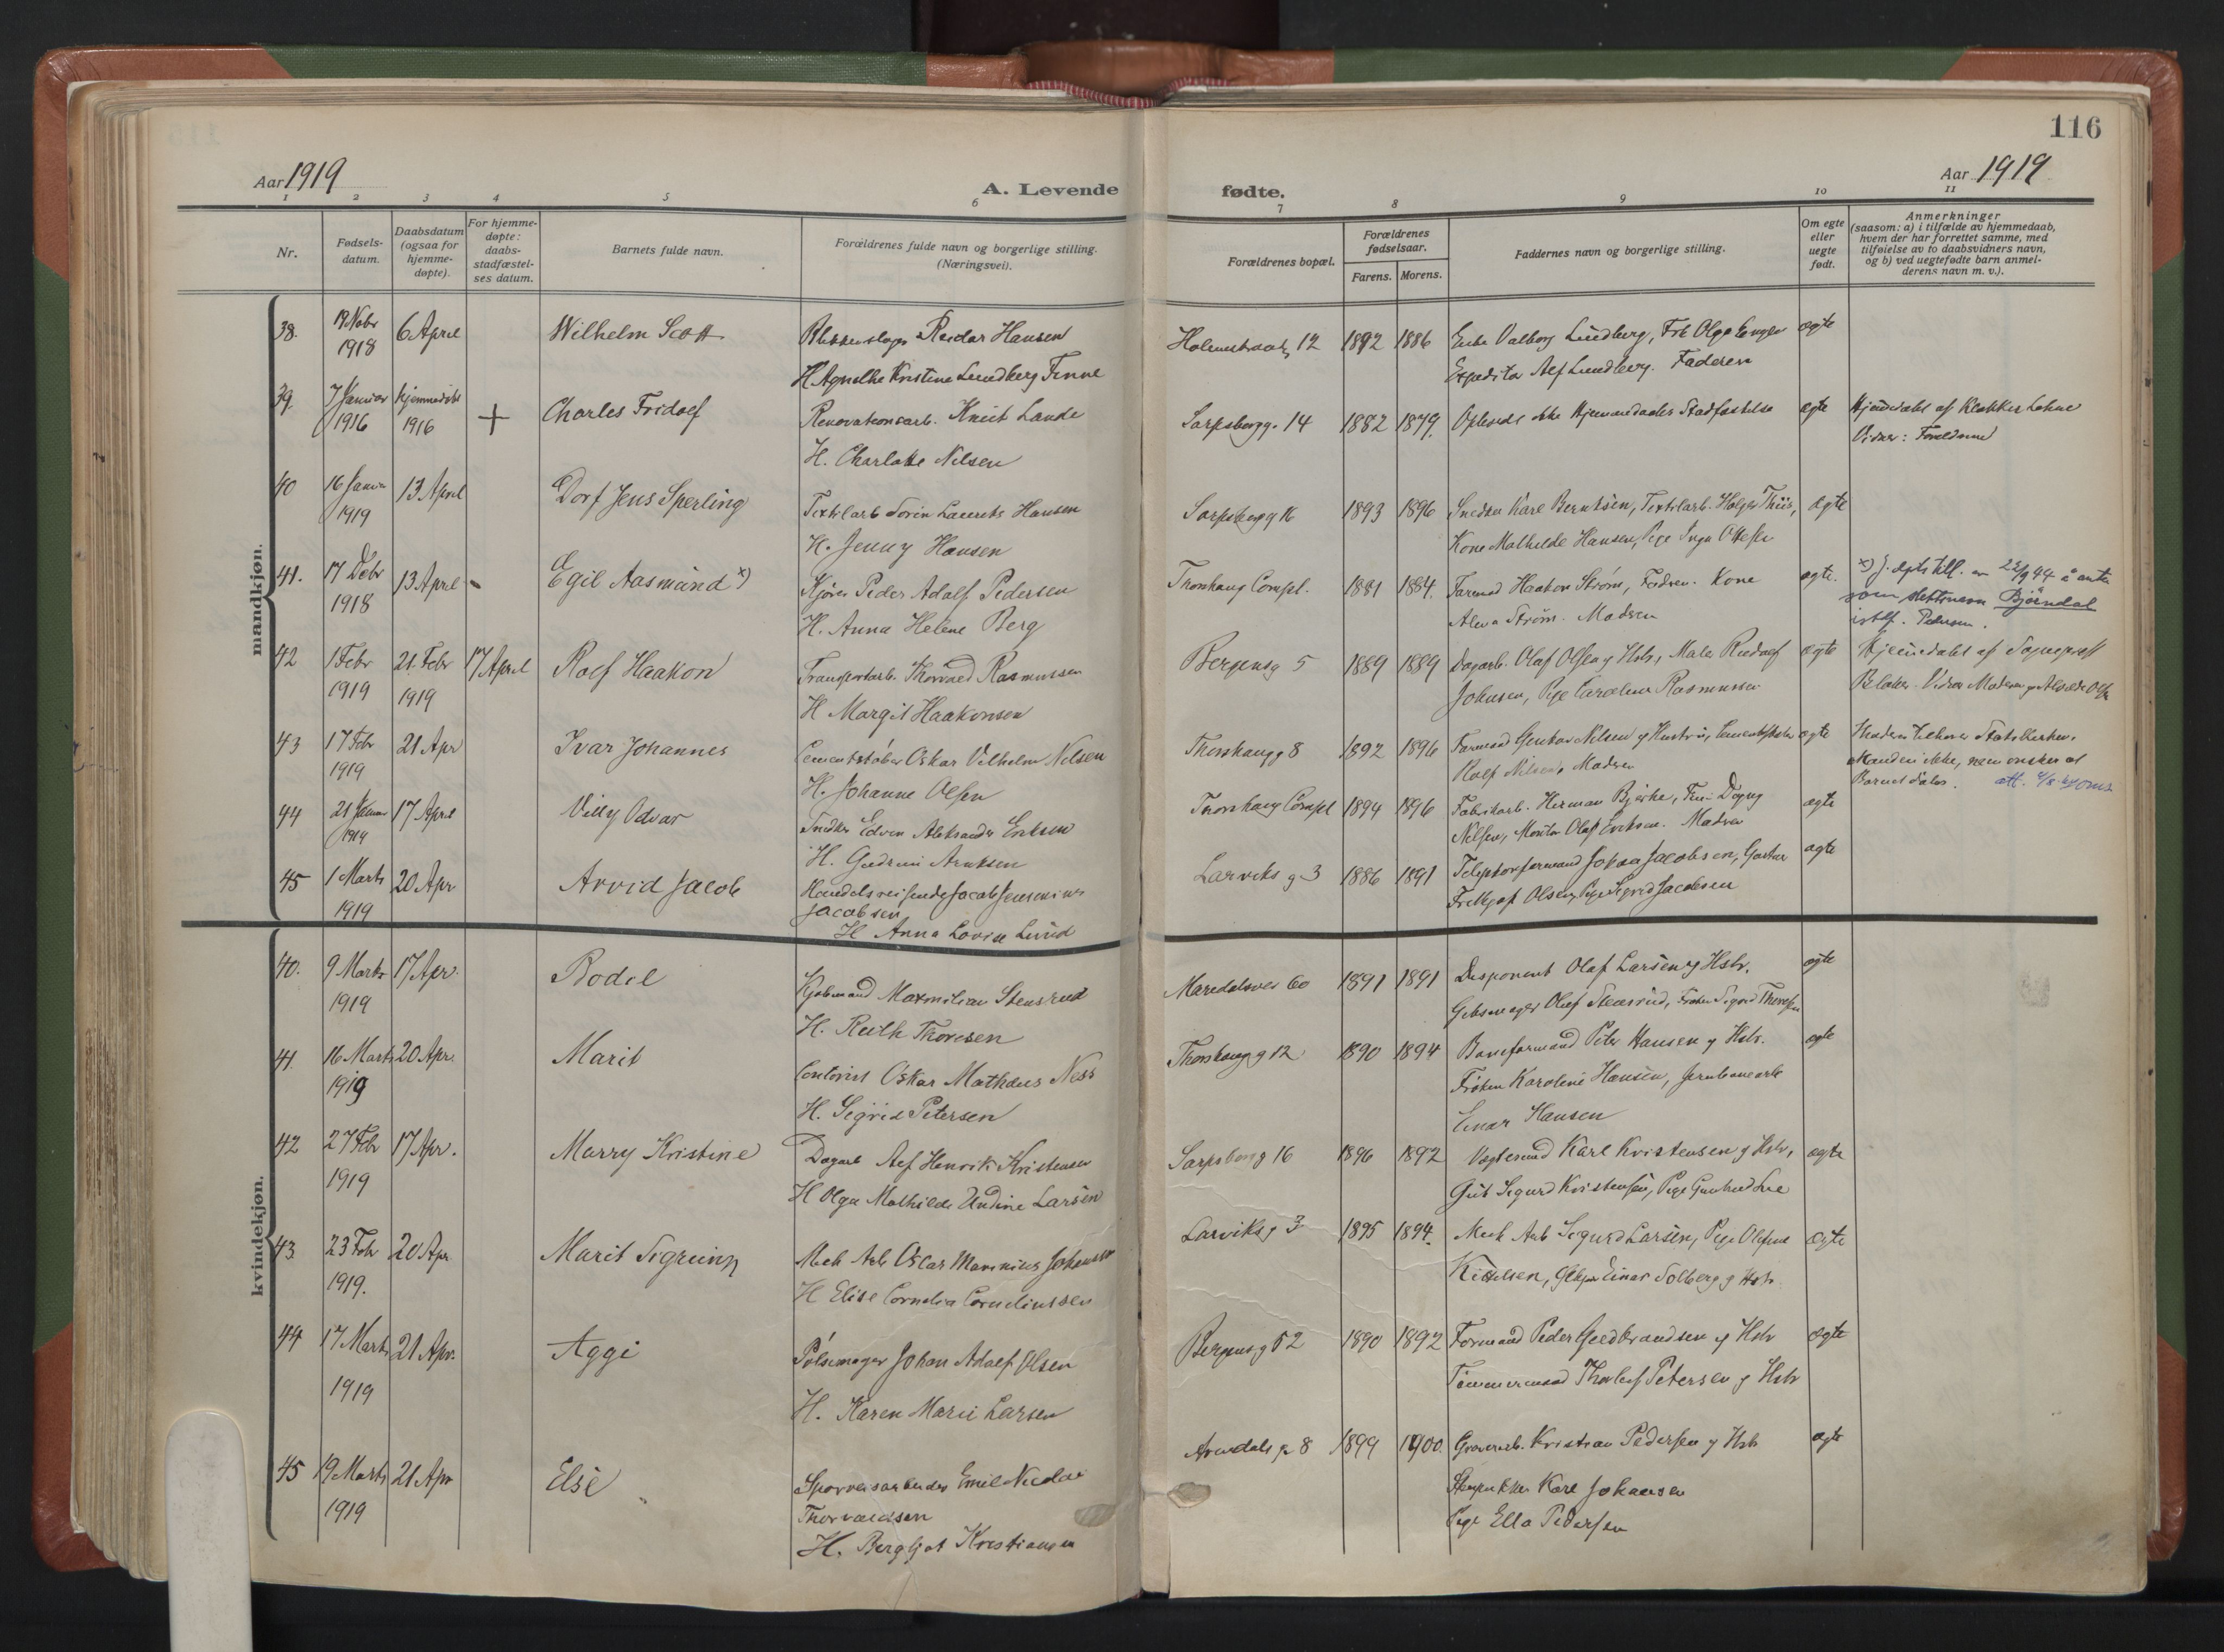 116
Aar 1919
A. Levende
fødte.
Aar 1919
1 2 3 4 5 6 7 8 9 10 11
Nr.
Fødsels-
datum.
Daabsdatum
(ogsaa for
hjemme-
døpte).
For hjemme-
døpte:
daabs-
stadfæstel-
ses datum.
Barnets fulde navn.
Forældrenes fulde navn og borgerlige stilling.
(Næringsvei).
Forældrenes bopæl.
Forældrenes
fødselsaar.
Farens. Morens.
Faddernes navn og borgerlige stilling.
Om egte
eller
uegte
født.
Anmerkninger
(saasom: a) i tilfælde av hjemmedaab,
hvem der har forrettet samme, med
tilføielse av to daabsvidners navn,
og b) ved uegtefødte barn anmel-
derens navn m. v.).
mandkjøn.
38. 19 Nobr 6 April Wilhelm Scott Reidar Hansen 12 1892 1886 Enke Valborg Lundberg, Frk Olga ægte
1918 H Agnethe Kristine Lundberg Finne Expeditør Alf Lundberg. Faderen
39. 7 Januar hjemmedøbt + Charles Fridolf Renovationsarb. Knut Lande Sarpsborgg. 14 1882 1879. Oplæst ikke Hjemmedaabs Stadfæstelse ægte Hjemmedøbt af Klokker Lohne
1916 1916 H. Charlotte Nilsen Vidner: Forældrene
40 16 Januar 13 April Dorf Jens Sperling Textilarb Sorin Laurits Hansen Sarpsborgg 16 1893 1896 Snedker Karl Berntsen, Textilarb. Holger Thiis, ægte
1919 H. Jenny Hansen Kone Mathilde Hansen, Pige Inga Ottesen
41. 17 Debr 13 April Egil Aasmund x) Kjører Peder Adolf Pedersen Thorshaug Compl. 1881 1884. Formand Haakon Strøm, Fadren. Kone ægte. x) J. dpts till. av 22/9 44 å anta
1918 H. Anna Helene Berg Strøm. Madren som slektsnavn Bjørndal
istf. Pedersen.
42 1 Febr 21. Febr 17 April Rolf Haakon Transportarb. Thorvald Rasmussen Bergensg 5 1889 1889 Dagarb. Olaf Olsen g Hstr, Maler Rudolf ægte Hjemmedøbt af Sognepræst
1919 1919 H Margit Haakonsen Johnsen, Pige Caroline Rasmussen Vidner Moderen
43 17 Febr 21 Apr Ivar Johannes Cementstøber Oskar Vilhelm Nilsen Thorshaugg 8 1892 1896 Formand Gustav Nilsen g Hustru, Cementstøber ægte Statskirken.
1919 H. Johanne Olsen Rolf Nilsen, Madren Manden ikke, men ønsker at
Barnet døbes.
44 21 Januar 17 April Villy Odvar Snedker Edvin Aleksander Eriksen Thorshaug Compl 1894 1896 Fabrikarb. Herman Bjerke, Fru Dagny ægte
1919 H. Gudrun Arntsen Nilsen, Montør Olaf Eriksen. Madren
45 1 Marts 20 Apr Arvid Jacob Handelsreisende Jacob Larviks g. 3 1886 1891 Telefonformand Johan Jacobsen, Gartner ægte
1919 Jacobsen Fridtjof Olsen, Pige Sigrid Jacobsen
H Anna Lovise Lund
kvindekjøn.
40. 9 Marts 17 Apr. Bodil Kjøbmand Maxmilian Stensrud Maridalsvei 60 1891 1891 Disponent Olaf Larsen g Hstr. ægte
1919 H. Ruth Thoresen Gibsmager Oluf Stensrud, Frøken Sigrid Thoresen
41. 16 Marts 20 Apr. Marit Contorist Oskar Mathæus Ness Thorshaugg 12 1890 1894 Baneformand Peter Hansen g Hstr. ægte
1919 H. Sigrid Petersen Frøken Karoline Hansen, Jernbanearb
Einar Hansen
42 27 Febr 17 Apr. Marry Kristine Dagarb Alf Henrik Kristensen Sarpsborg g 16 1896 1892 Vægtermd Karl Kristensen g Hstr, ægte
1919 H Olga Mathilde Undine Larsen Gut Sigurd Kristensen, Pige Gunhild Lie
43. 23 Febr 20 Apr Marit Sigrunn Mek Arb Oscar Marinius Johansen Larviksg 3 1895 1894. Mek Arb Sigurd Larsen, Pige ægte
1919. H Elise Cornelia Corneliussen Kittelsen, Einar Solberg g Hstr
44 17 Marts 21 Apr. Aggi Pølsemager Johan Adolf Olsen Bergensg 52 1890 1892 Formand Peder Guldbrandsen g Hstr ægte
1919 H. Karen Marie Larsen Tømmermand Thorleif Petersen g Hstr
45 19 Marts 21 Apr Else Sporveisarbeider Emil Nicolai Arendals g 8 1899 1900. Kristian Pedersen g Hstr ægte
1919 Thorvaldsen Karl Johansen
H. Bergljot Kristiansen Pige Ella Pedersen